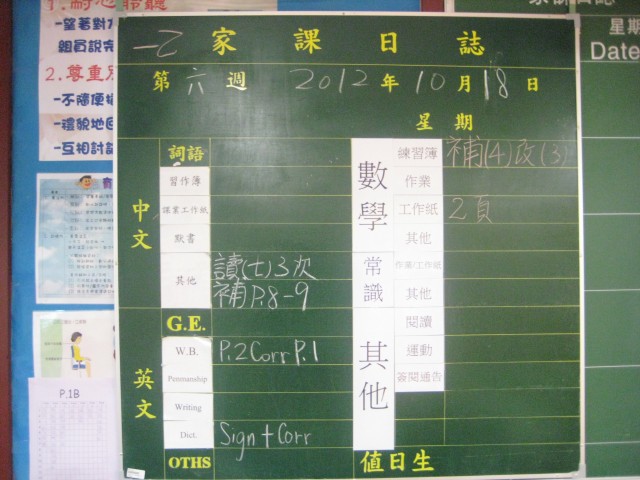 1.耐心聆聽
-望著對方
組員說完
2.尊重別
-不隨便插
-禮貌地回
-互相討論
P.1B
一乙 家課日誌
第六週 2012年10月18日
星期
中文
詞語
習作簿
課業工作紙
默書
其他 讀(七)3次
補P.8-9
英文
G.E.
W.B. P.2 Corr P.1
Penmanship
Writing
Dict. Sign + Corr
OTHS
數學
練習簿 補(4)改(3)
作業
工作紙 2頁
其他
常識
作業/工作紙
其他
其他
閱讀
運動
簽閱通告
值日生
星期
Date